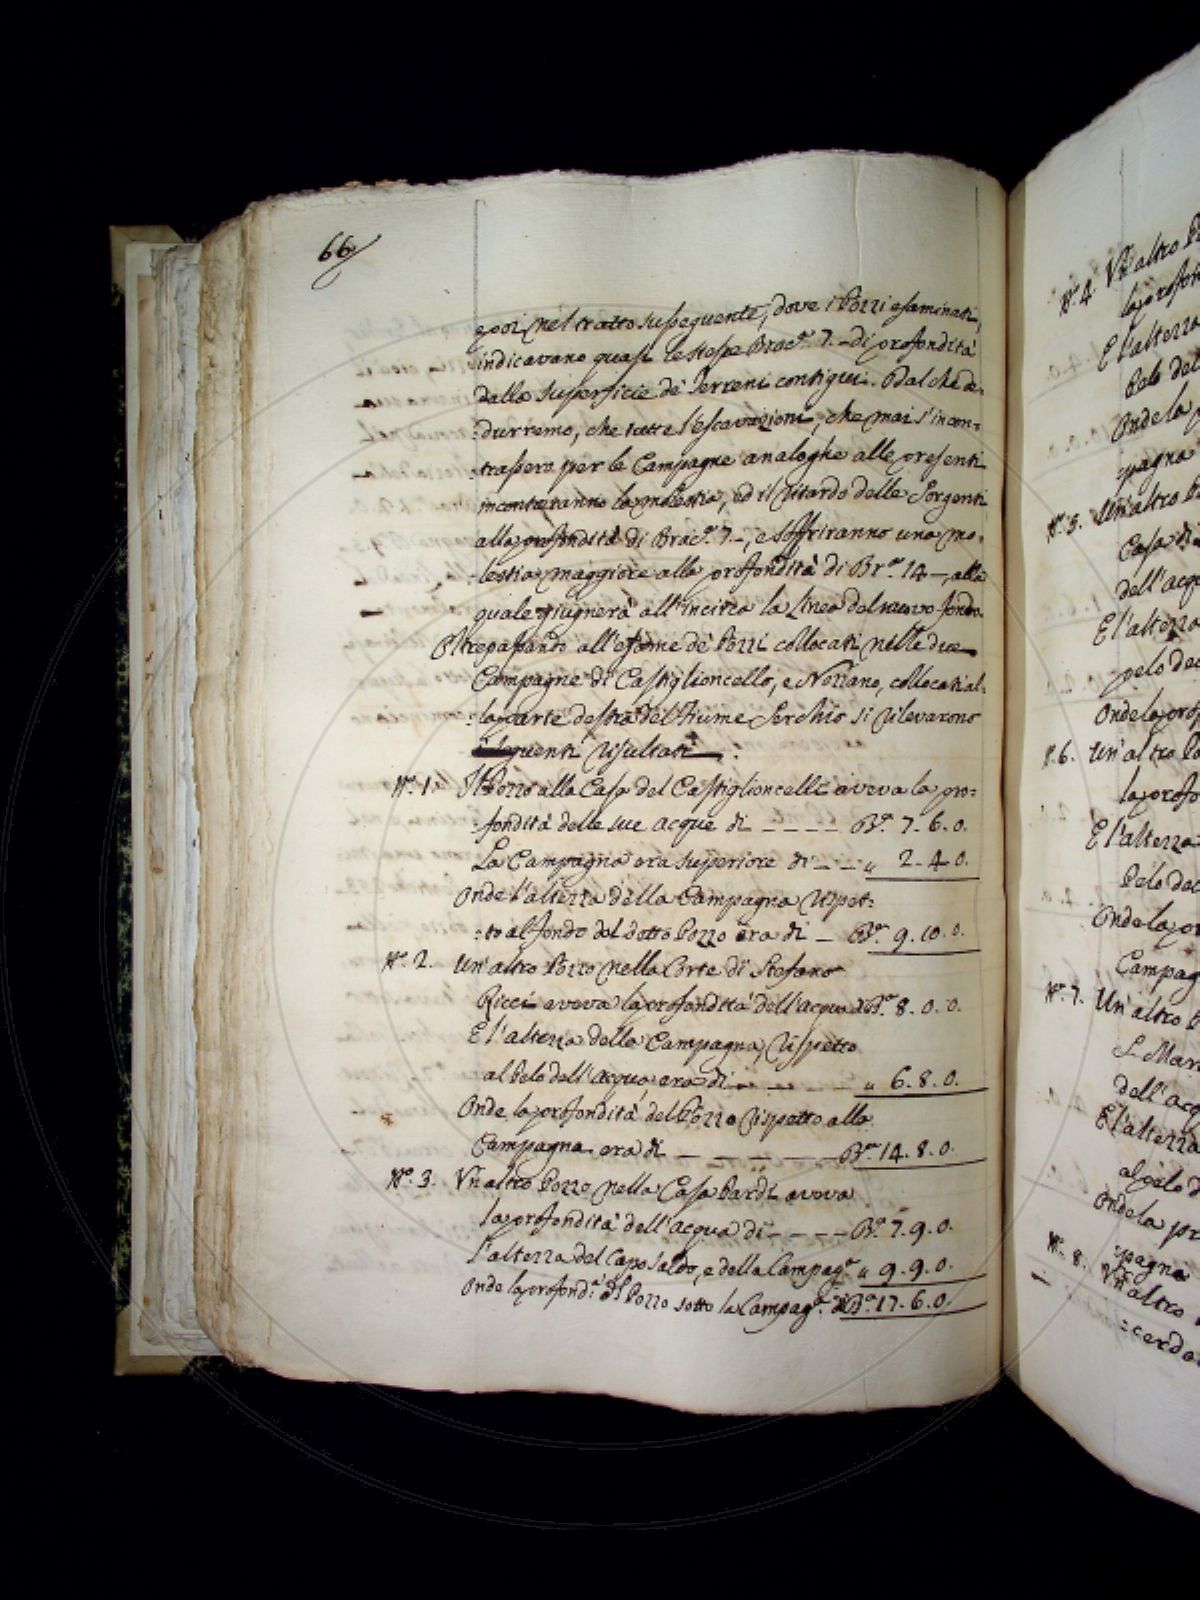 66
e poi nel tratto susseguente, dove i Pozzi esaminati,
indicavano quasi le stesse Brac.ª 7. - di profondità
dalla superficie de' Terreni contigui. Dal che de-
:durremo, che tutte l'escavazioni, che mai s'incon=
:trassero per le Campagne analoghe alle presenti
incontreranno la molestia, ed il ritardo delle Sorgenti
alla profondità di Brac.ª 7. -, e soffriranno una mo-
:lestia maggiore alla profondità di Br.ª 14 -, alla
quale giugnerà all'incirca la Linea del nuovo fondo.
Oltrepassando all'esame de' Pozzi collocati nelle due
Campagne di Castiglioncello, e Nozzano, collocati al-
:la parte destra del Fiume Serchio si rilevarono
i seguenti risultati:
N.º 1. Il Pozzo alla Casa del Castiglioncelli aveva la pro=
:fondità delle sue acque di - - - - B.ª 7. 6. 0.
La Campagna era superiore di - - - " 2. 4. 0.
Onde l'altezza della Campagna rispet:
:to al fondo del detto Pozzo era di - B.ª 9. 10. 0.
N.º 2. Un'altro Pozzo nella Corte di Stefano
Ricci aveva la profondità dell'acqua di B.ª 8. 0. 0.
E l'altezza della Campagna, rispetto
al Pelo dell'acqua, era di - - - - " 6. 8. 0.
Onde la profondità del Pozzo rispetto alla
Campagna era di - - - - - B.ª 14. 8. 0.
N.º 3. Un altro Pozzo nella Casa Pardi aveva
la profondità dell'acqua di - - - - B.ª 7. 9. 0.
l'altezza del Capo saldo, e della Campag.ª " 9. 9. 0.
Onde la profond.ª del Pozzo sotto la Campag.ª di B.ª 17. 6. 0.
N.º 4. Un altro
la profon
E l'altezza
Pelo del
Onde la
pagna
N.º 5. Un'altro
Casa
dell'acq
E l'altezza
pelo
Onde la prof
6. Un'altro
la profo
E l'altezza
Pelo
Onde la
Campag
N.º 7. Un'altro
S. Mar
dell'acq
E l'altezza
al pelo
Onde la pr
pagna
N.º 8. Un'altro
:cerdo